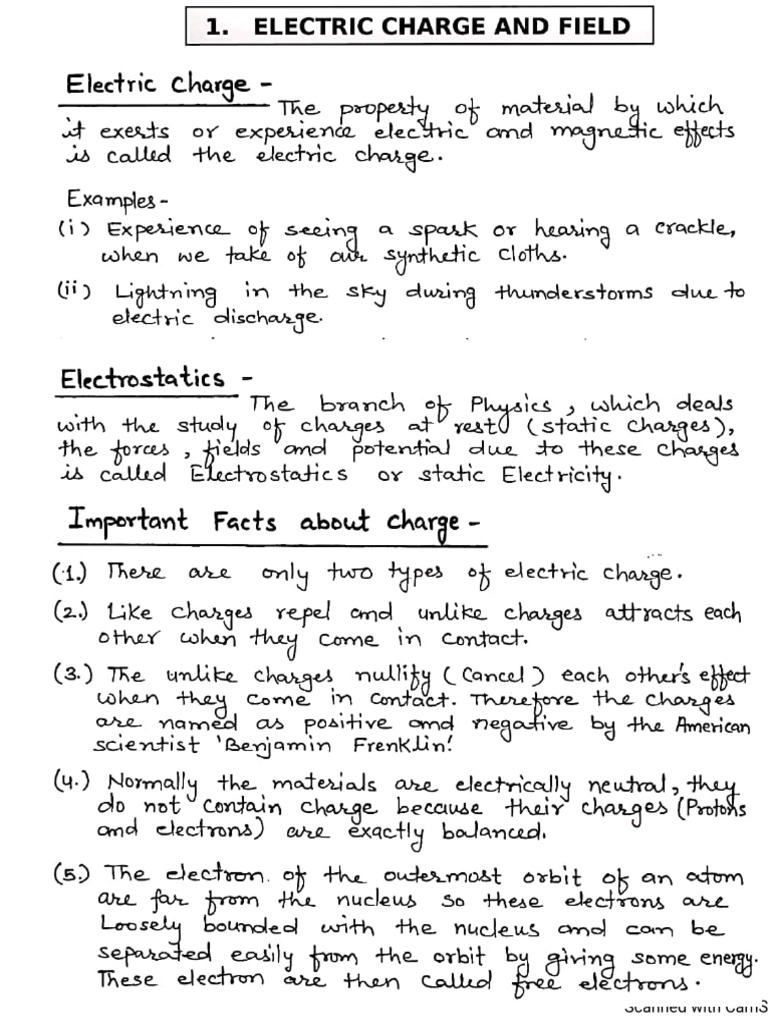 1. ELECTRIC CHARGE AND FIELD
Electric Charge -
The property of material by which
it exerts or experience electric and magnetic effects
is called the electric charge.
Examples-
(i) Experience of seeing a spark or hearing a crackle,
when we take of our synthetic cloths.
(ii) Lightning in the sky during thunderstorms due to
electric discharge.
Electrostatics -
The branch of Physics, which deals
with the study of charges at rest (static charges),
the forces, fields and potential due to these charges
is called Electrostatics or static Electricity.
Important Facts about charge -
(1.) There are only two types of electric charge.
(2.) Like charges repel and unlike charges attracts each
other when they come in contact.
(3.) The unlike charges nullify (cancel) each other's effect
when they come in contact. Therefore the charges
are named as positive and negative by the American
scientist 'Benjamin Frenklin'.
(4.) Normally the materials are electrically neutral, they
do not contain charge because their charges (Protons
and electrons) are exactly balanced.
(5.) The electron of the outermost orbit of an atom
are far from the nucleus so these electrons are
Loosely bounded with the nucleus and can be
separated easily from the orbit by giving some energy.
These electron are then called free electrons.
Scanned with CamS